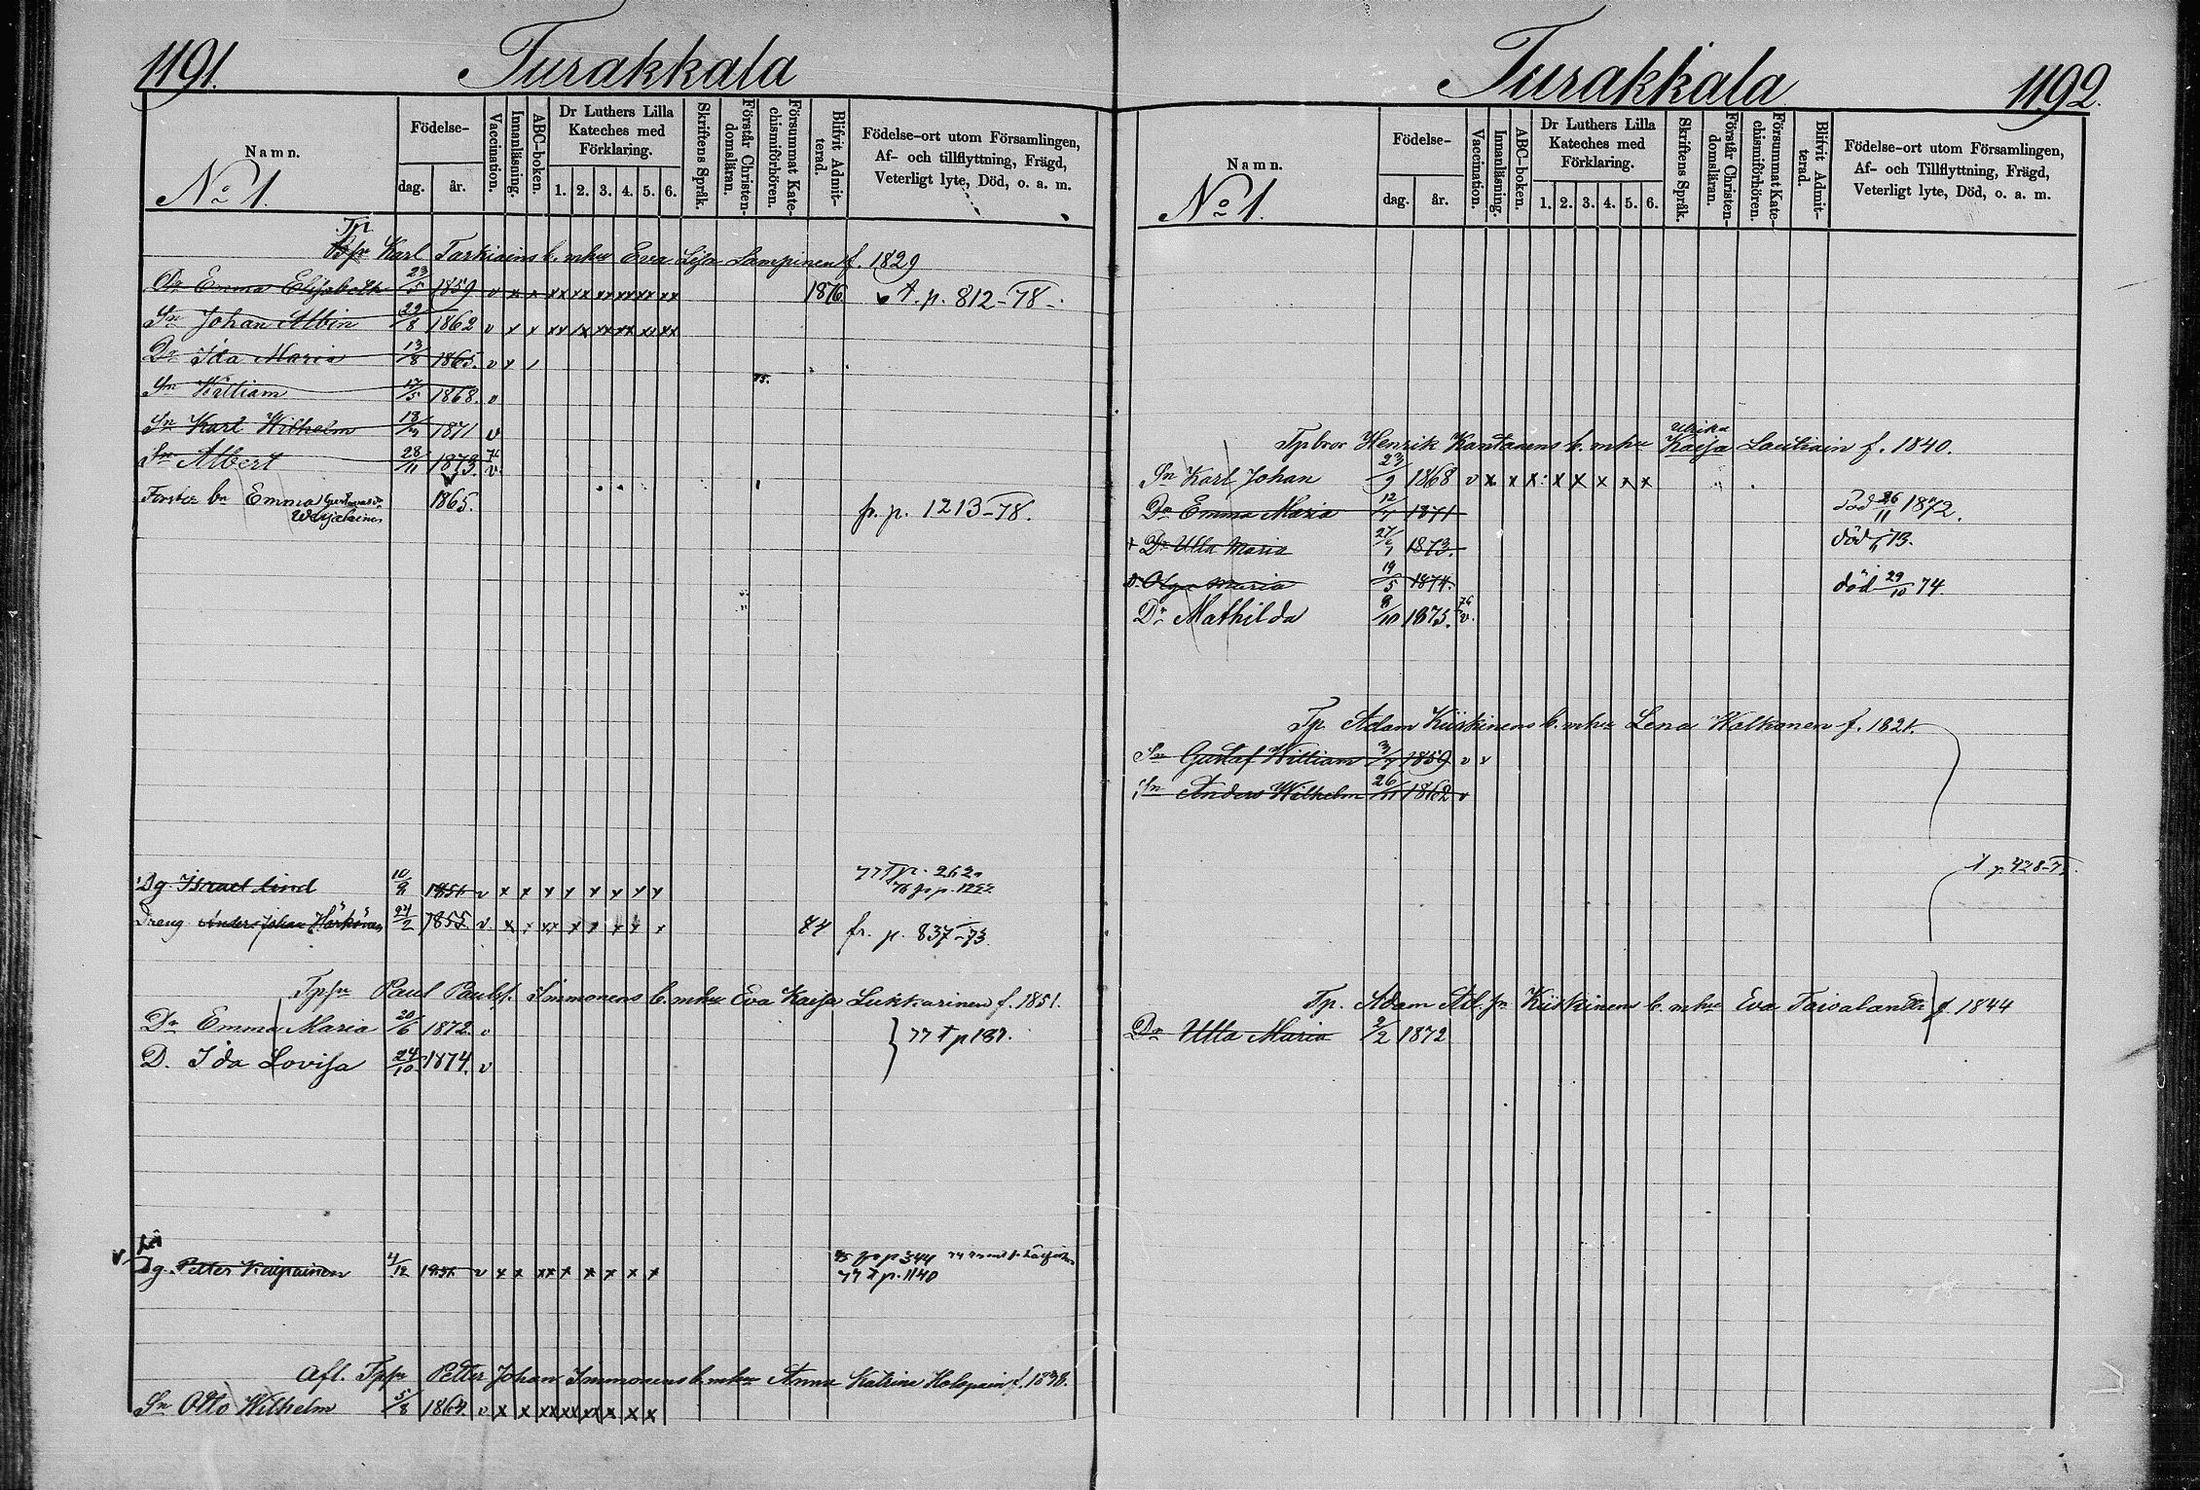 1191.
Turakkala
Namn.
No 1.
Födelse-
dag.
år.
Vaccination.
Innanläsning.
ABC-boken.
Dr Luthers Lilla
Kateches med
Förklaring.
1. 2. 3. 4. 5. 6.
Skriftens Språk.
Förstår Christen-
domsläran.
Försummat Kate-
chismiförhören.
Blifvit Admit-
terad.
Födelse-ort utom Församlingen,
Af- och tillflyttning, Frägd,
Veterligt lyte, Död, o. a. m.
Tp
Karl Tarkiains b. mhu Eva Lisa Lampinen f. 1829
Dr Emma Elisabeth 23/5 1859 v x x xx xx xx xx xx xx 1876 p. 812-78
Sn Johan Albin 29/8 1862 v x x xx 1x xx xx xx xx
Dr Ida Maria 13/8 1865. v x /
Sn William 17/5 1868. v
Sn Karl Wilhelm 1871 v
Sn Albert 28/11 1873. v.
Foster Emma
1865. fr. p. 1213-78.
Dg Israel Lind 10/8 v x x x x x x x x 77 T p. 262
Dreng Anders Johan Härkönen 24/2 1855 v x x xx x x x x x fr. p. 837-73.
Tpsn Paul Paulss. Immonens b. mhu Eva Kaisa Lukkarinen f. 1851.
Dr Emma Maria 20/6 1872. v
77 T p 137.
D. Ida Lovisa 24/10 1874. v
Dg. Petter v x x xx x x x x x 75 fr p 344
77 T p. 1140
Afl. Tpsn Petter Johan Immonens b. mhu Anna Katrina Holopain f. 1838.
Sn Otto Wilhelm 5/8 1864. v x x xx xx xx x x x
Turakkala
1192.
Namn.
No 1.
Födelse-
dag.
år.
Vaccination.
Innanläsning.
ABC-boken.
Dr Luthers Lilla
Kateches med
Förklaring.
1. 2. 3. 4. 5. 6.
Skriftens Språk.
Förstår Christen-
domsläran.
Försummat Kate-
chismiförhören.
Blifvit Admit-
terad.
Födelse-ort utom Församlingen,
Af- och Tillflyttning, Frägd,
Veterligt lyte, Död, o. a. m.
Ulrika
Tpbror Henrik Kantanens b. mhu Kaisa Lautiain f. 1840.
Sn Karl Johan 23/9 1868 v x x x x x x x x
Dr Emma Maria 1871 död 26/11 1872.
+ Dr Ulla Maria 1873. död 73.
D. Olga Maria 19/5 1874. död 29/10 74.
Dr Mathilda 8/10 1875. 76 v.
Tp Adam Kiiskinens b. mhu Lena Walkonen f. 1821.
Sn Gustaf William 3/7 1859 v v
Sn Anders Wilhelm 26/11 1862 v
p 428-
Tp. Adam Ad. sn Kiiskinens b. mhu Eva Taivalantti f. 1844
Dr Ulla Maria 9/2 1872